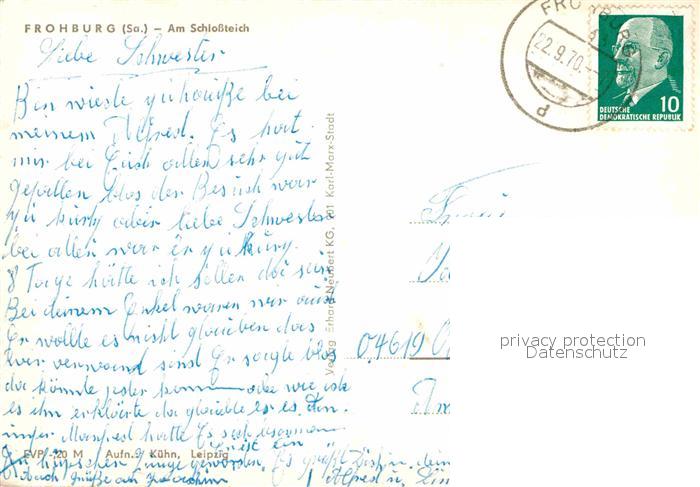 FROHBURG (Sa.) – Am Schloßteich
Liebe Schwester
Bin wieder zu hause bei
meinem Alfred. Es hat
mir bei Euch allen sehr gut
gefallen blos der Besuch war
zu kurz aber liebe Schwester
bei allen war er zu kurz.
8 Tage hätte ich sollen da sein
Bei deinem Enkel waren wir auch
Er wollte es nicht glauben das
wir verwand sind Er sagte blos
da könnte jeder komm oder wie ich
es ihn erklärte da glaubte er es dan.
unser Manfred hatte
ist ein
hüpschen Junge geworden. Es grüßt Dich
Alfred u.
auch grüße an
EVP -20 M Aufn.: Kühn, Leipzig
Verlag Erhard Neubert KG, 901 Karl-Marx-Stadt
FROHBURG
22.9.70
d
10
DEUTSCHE
DEMOKRATISCHE REPUBLIK
04619
privacy protection
Datenschutz